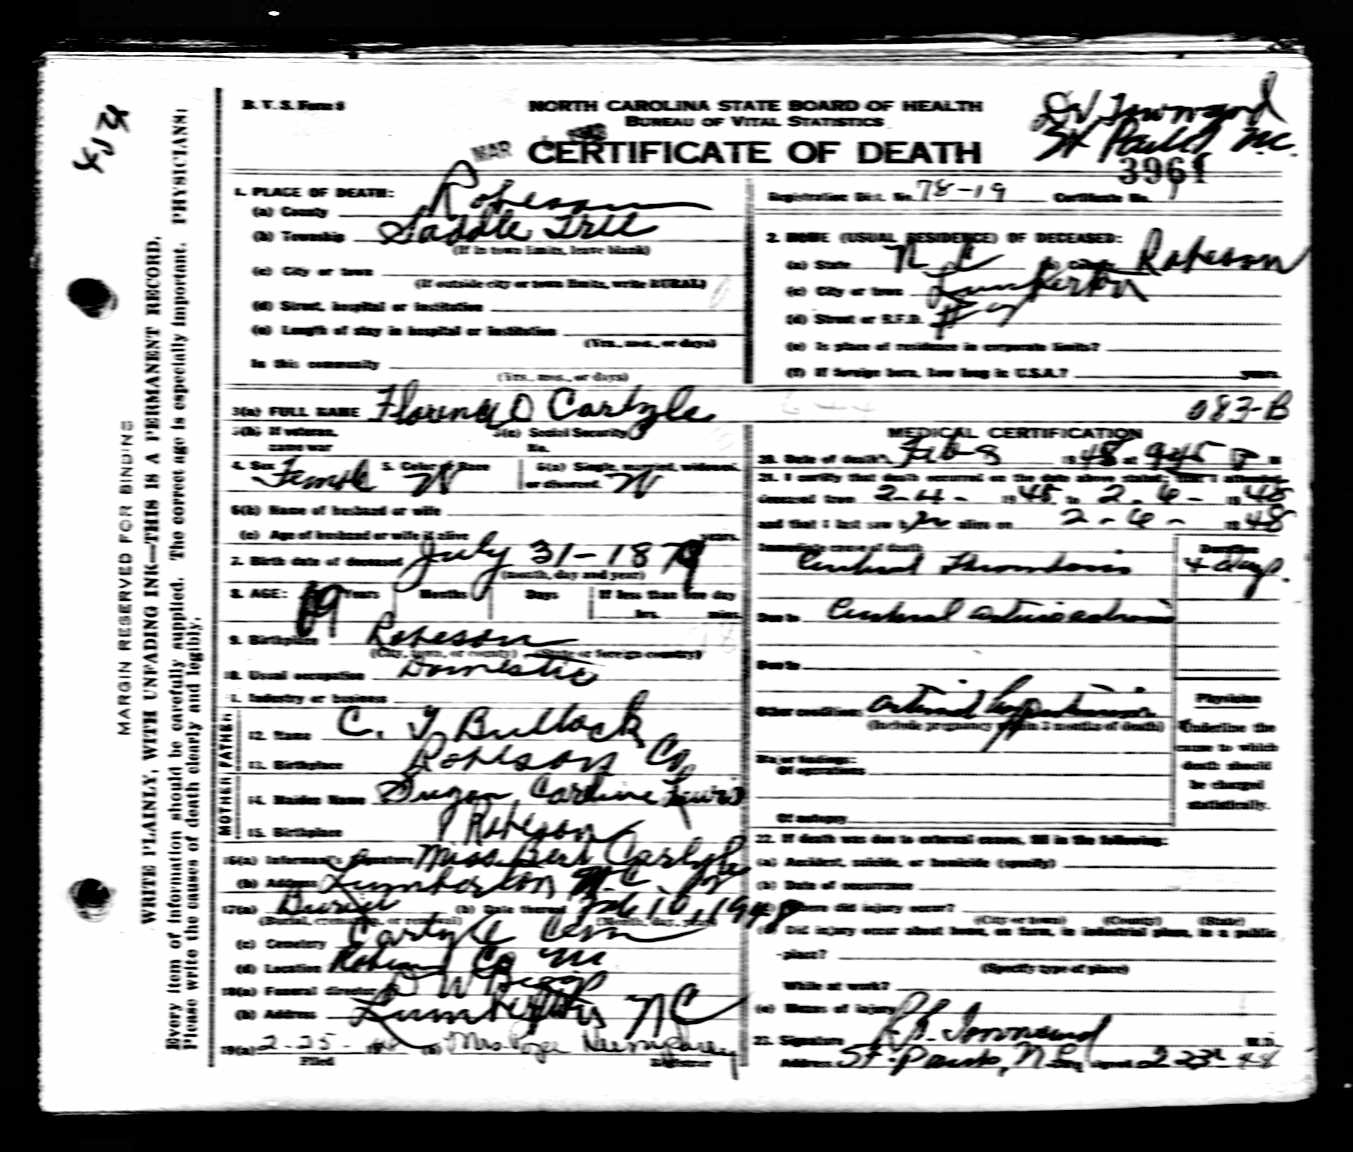 4524
B. V. S. Form 8
NORTH CAROLINA STATE BOARD OF HEALTH
BUREAU OF VITAL STATISTICS
MAR
CERTIFICATE OF DEATH
St Pauls, N.C.
3961
MARGIN RESERVED FOR BINDING
WRITE PLAINLY, WITH UNFADING INK—THIS IS A PERMANENT RECORD.
Every item of information should be carefully supplied. The correct age is especially important. PHYSICIANS:
Please write the causes of death clearly and legibly.
1. PLACE OF DEATH:
(a) County Robeson
(b) Township Saddle Tree
(If in town limits, leave blank)
(c) City or town
(If outside city or town limits, write RURAL)
(d) Street, hospital or institution
(e) Length of stay in hospital or institution
(Yrs., mos., or days)
In this community
(Yrs., mos., or days)
Registration Dist. No. 78-19 Certificate No.
2. HOME (USUAL RESIDENCE) OF DECEASED:
(a) State N C (b) County Robeson
(c) City or town Lumberton
(d) Street or R.F.D.
(e) Is place of residence in corporate limits?
(f) If foreign born, how long in U.S.A.? years
3(a) FULL NAME Florence D Carlyle
083-B
3(b) If veteran, name war
3(c) Social Security No.
4. Sex Female 5. Color or Race W
6(a) Single, married, widowed, or divorced. W
6(b) Name of husband or wife
(c) Age of husband or wife if alive years.
7. Birth date of deceased July 31-1879
(month, day and year)
8. AGE: Years Months Days If less than one day
hrs. mins.
9. Birthplace Robeson
(City, town, or county) (State or foreign country)
10. Usual occupation Domestic
11. Industry or business
FATHER
12. Name C. T. Bullock
13. Birthplace Robeson Co
MOTHER
14. Maiden Name Caroline Lewis
15. Birthplace Robeson
16(a) Informant's Signature Miss Bert Carlyle
(b) Address Lumberton N.C.
17(a) Burial (b) Date thereof Feb 10, 1948
(Burial, cremation, or removal) (Month, day, year)
(c) Cemetery Carlyle Cem
(d) Location Robeson Co NC
18(a) Funeral director D W Biggs
(b) Address Lumberton NC
19(a) 2-25- (b) Mrs. Humphrey
Filed Registrar
MEDICAL CERTIFICATION
20. Date of death Feb-8 1948 at 9:45 P M
21. I certify that death occurred on the date above stated; that I attended
deceased from 2-4- 1948 to 2-6- 1948
and that I last saw h alive on 2-6- 1948
Immediate cause of death Duration
Cerebral Thrombosis 4 days.
Due to Cerebral
Due to
Other conditions
(Include pregnancy within 3 months of death)
Physician
Underline the
cause to which
death should
be charged
statistically.
Major findings:
Of operations
Of autopsy
22. If death was due to external causes, fill in the following:
(a) Accident, suicide, or homicide (specify)
(b) Date of occurrence
(c) Where did injury occur?
(City or town) (County) (State)
(d) Did injury occur about home, on farm, in industrial place, in a public
place?
(Specify type of place)
While at work?
(e) Means of injury
23. Signature Townsend M.D.
Address St. Pauls, N.C. Date signed 2 23 48